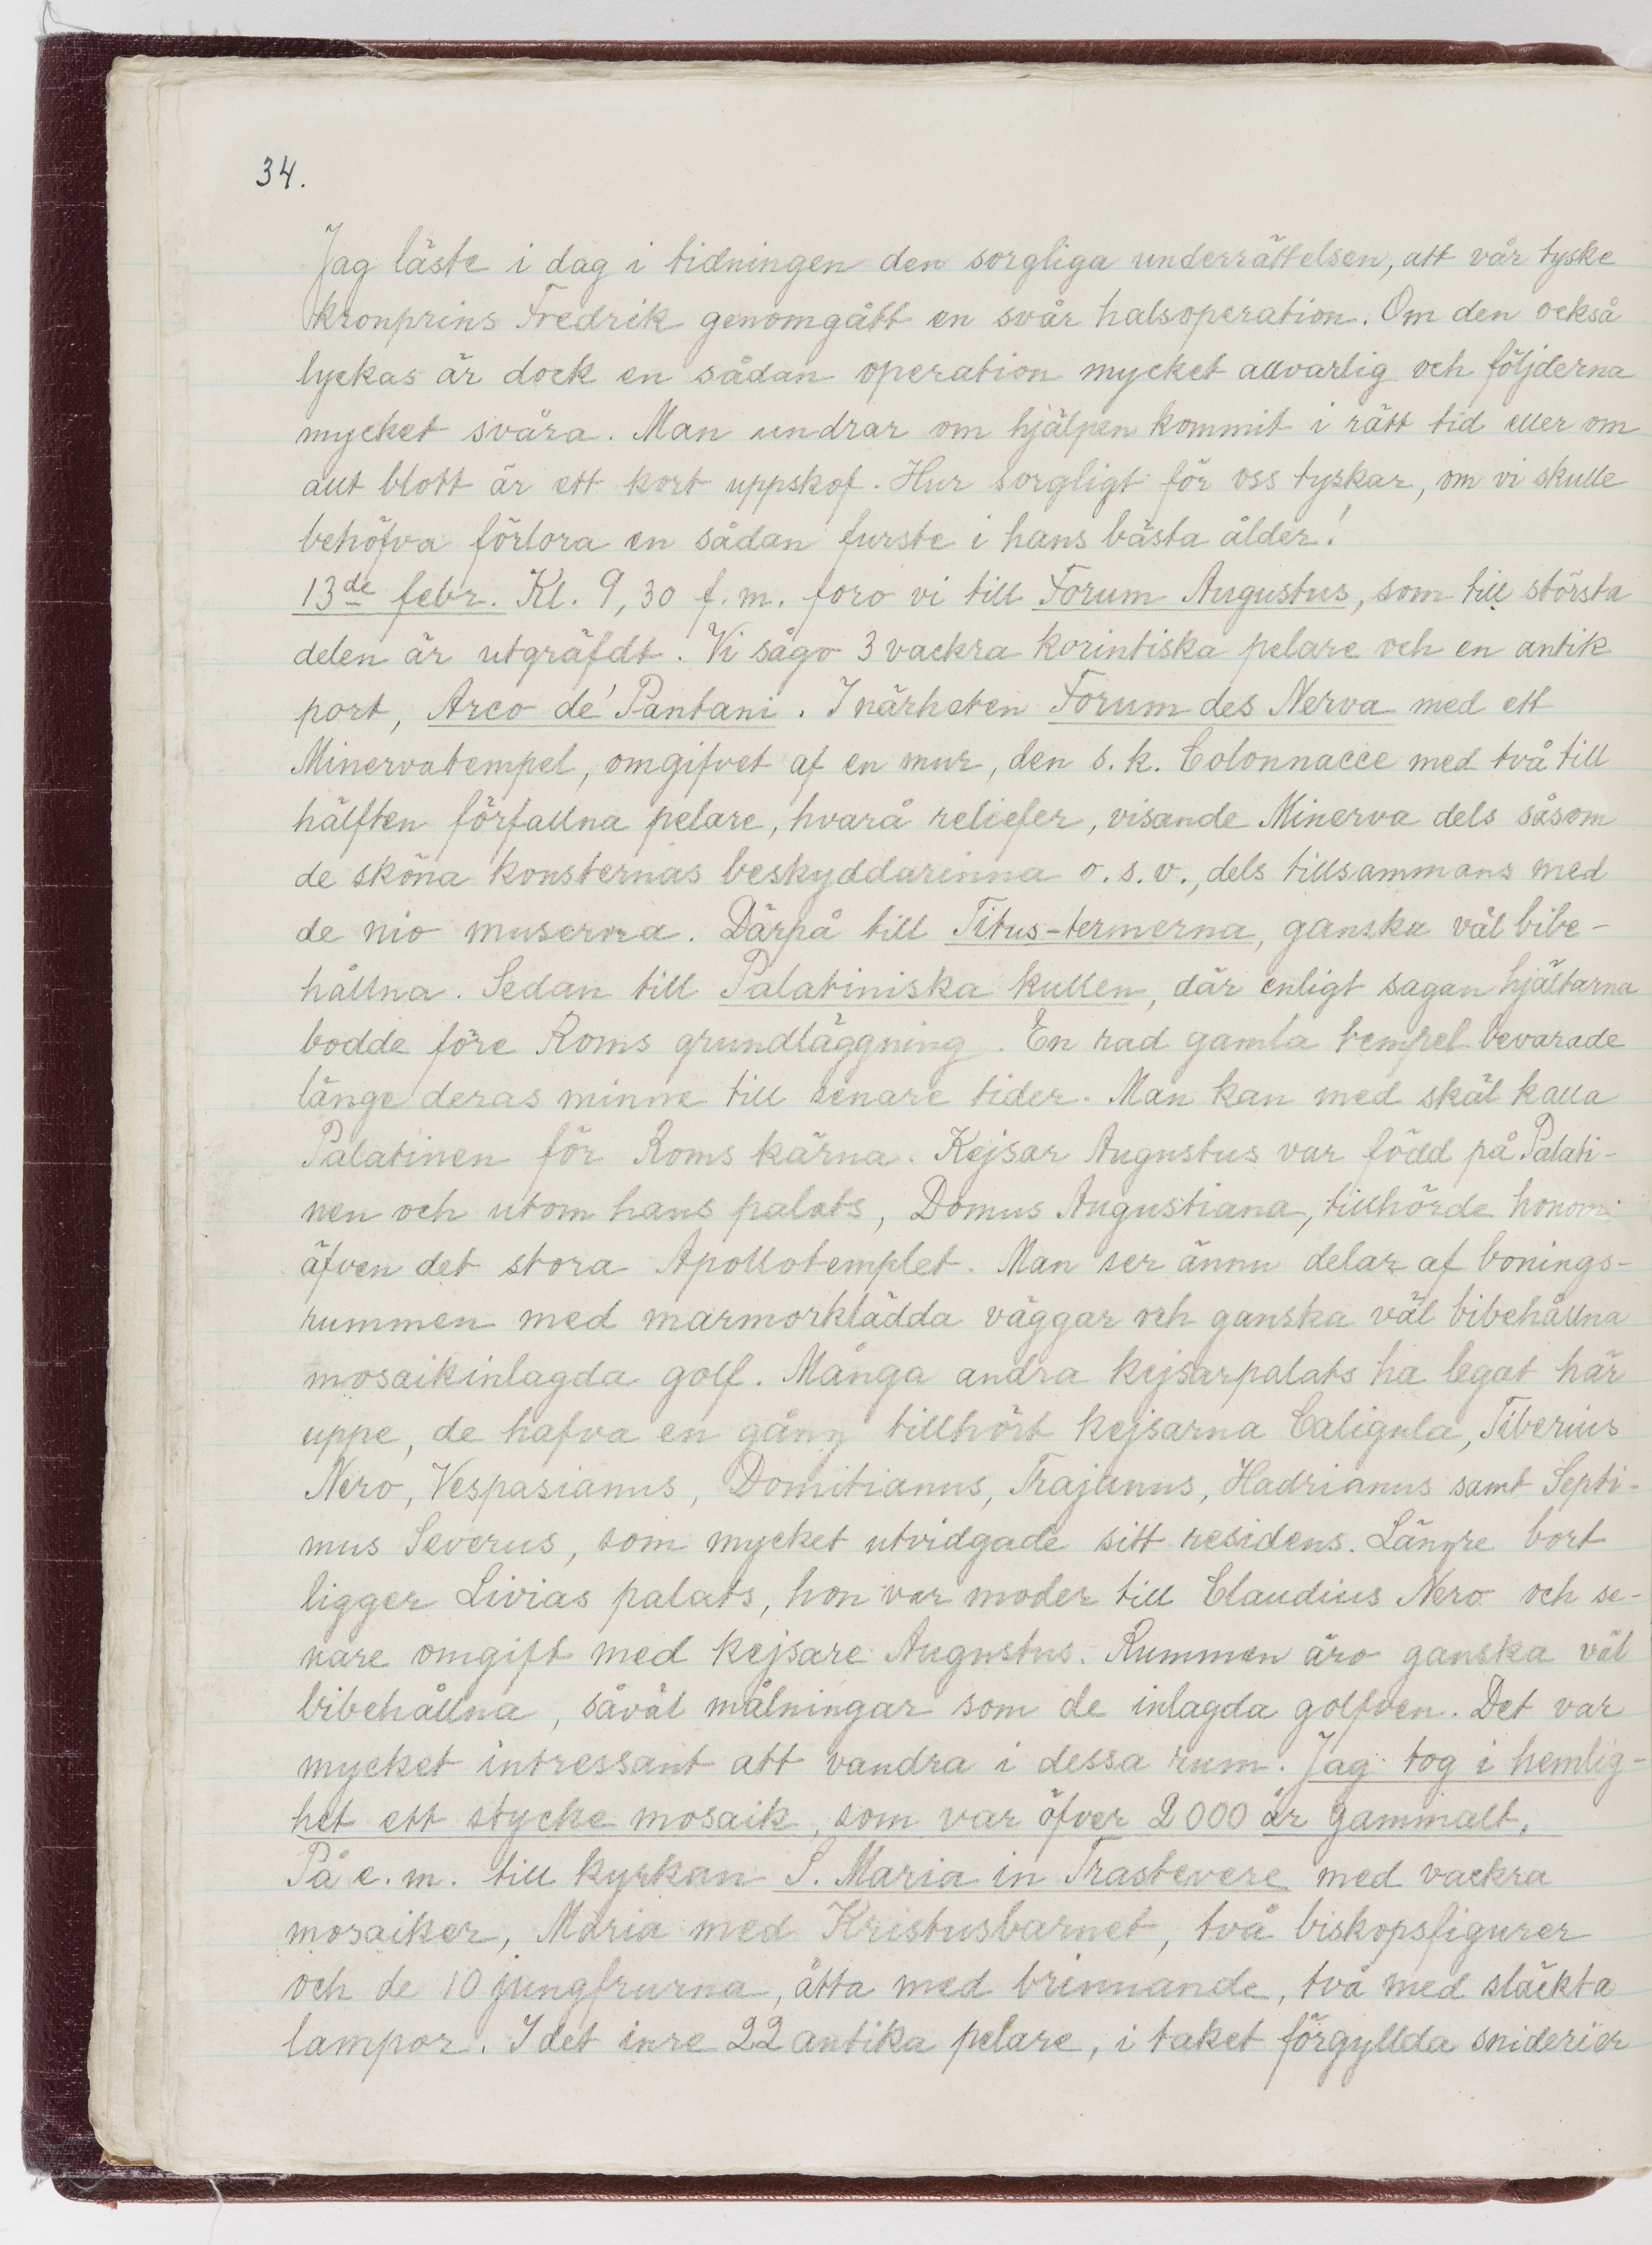 34.
Jag läste i dag i tidningen den sorgliga underrättelsen, att vår tyske
kronprins Fredrik genomgått en svår halsoperation. Om den också
lyckas är dock en sådan operation mycket allvarlig och följderna
mycket svåra. Man undrar om hjälpen kommit i rätt tid eller om
allt blott är ett kort uppskof. Hur sorgligt för oss tyskar, om vi skulle
behöfva förlora en sådan furste i hans bästa ålder!
13de febr. Kl. 9,30 f.m. foro vi till Forum Augustus, som till största
delen är utgräfdt. Vi sågo 3 vackra korintiska pelare och en antik
port, Arco de' Pantani. I närheten Forum des Nerva med ett
Minervatempel, omgifvet af en mur, den s.k. Colonnacce med två till
hälften förfallna pelare, hvarå reliefer, visande Minerva dels såsom
de sköna konsternas beskyddarinna o.s.v., dels tillsammans med
de nio muserna. Därpå till Titus-termerna, ganska väl bibe-
hållna. Sedan till Palatiniska kullen, där enligt sagan hjältarna
bodde före Roms grundläggning. En rad gamla tempel bevarade
länge deras minne till senare tider. Man kan med skäl kalla
Palatinen för Roms kärna. Kejsar Augustus var född på Palati-
nen och utom hans palats, Domus Augustiana, tillhörde honom
äfven det stora Apollotemplet. Man ser ännu delar af bonings-
rummen med marmorklädda väggar och ganska väl bibehållna
mosaikinlagda golf. Många andra kejsarpalats ha legat här
uppe, de hafva en gång tillhört kejsarna Caligula, Tiberius
Nero, Vespasianus, Domitianus, Trajanus, Hadrianus samt Septi-
mus Severus, som mycket utvidgade sitt residens. Längre bort
ligger Livias palats, hon var moder till Claudius Nero och se-
nare omgift med kejsare Augustus. Rummen äro ganska väl
bibehållna, såväl målningar som de inlagda golfven. Det var
mycket intressant att vandra i dessa rum. Jag tog i hemlig-
het ett stycke mosaik, som var öfver 2000 år gammalt.
På e.m. till kyrkan S. Maria in Trastevere med vackra
mosaiker, Maria med Kristusbarnet, två biskopsfigurer
och de 10 jungfrurna, åtta med brinnande, två med släckta
lampor. I det inre 22 antika pelare, i taket förgyllda sniderier